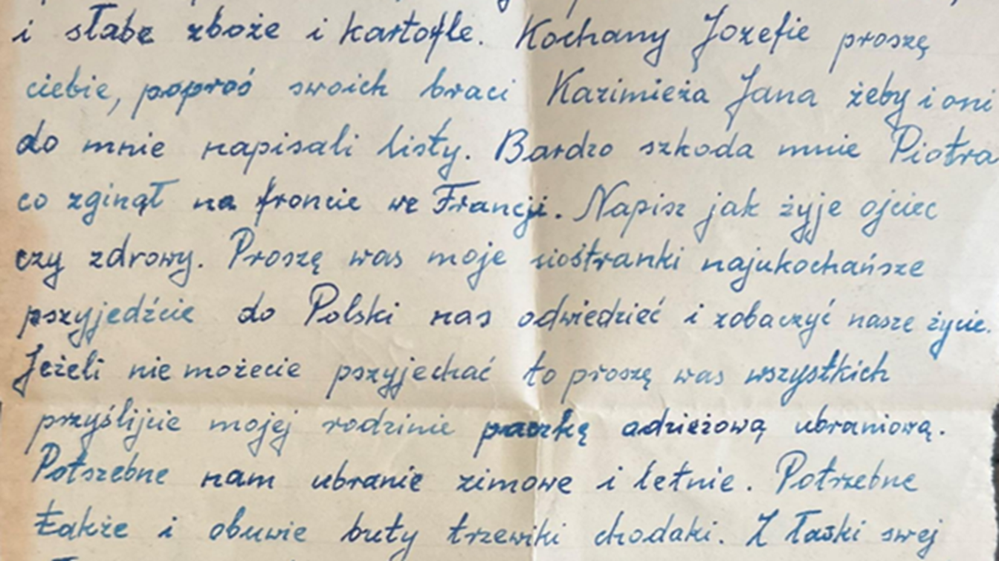 i słabe zboże i kartofle. Kochany Jozefie proszę
ciebie, poproś swoich braci Kazimieża Jana żeby i oni
do mnie napisali listy. Bardzo szkoda mnie Piotra
co zginął na froncie we Francji. Napisz jak żyje ojciec
czy zdrowy. Proszę was moje siostranki najukochańsze
pszyjedźcie do Polski nas odwiedzieć i zobaczyć nasze życie.
Jeżeli nie możecie pszyjechać to proszę was wszystkich
przyślijcie mojej rodzinie paczkę odzieżową ubraniową.
Potszebne nam ubranie zimowe i letnie. Potrzebne
także i obuwie buty trzewiki chodaki. Z łaski swej